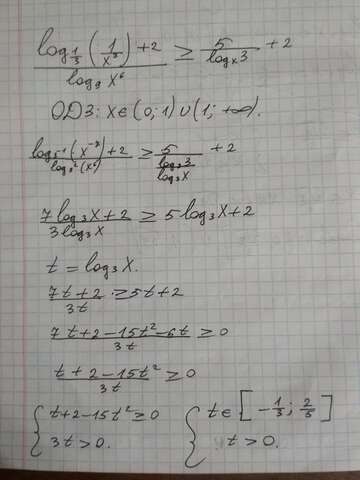 (log_{1/3}(1/x^7)+2)/(log_9 x^6) ≥ 5/(log_x 3) + 2
ОДЗ: x∈(0;1)∪(1;+∞).
(log_{3^{-1}}(x^{-7})+2)/(log_{3^2}(x^6)) ≥ 5/((log_3 3)/(log_3 x)) + 2
(7log_3 x+2)/(3log_3 x) ≥ 5log_3 x+2
t = log_3 x.
(7t+2)/(3t) ≥ 5t+2
(7t+2-15t^2-6t)/(3t) ≥ 0
(t+2-15t^2)/(3t) ≥ 0
{ t+2-15t^2 ≥ 0 { t∈[-1/3; 2/5]
3t > 0. t > 0.